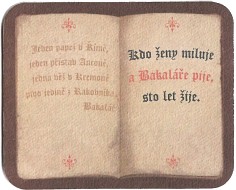 Jeden papež v Římě,
jeden přístav
jedna děl v Kremoně
pivo jediné z Rakovníka,
Bakalář
Kdo ženy miluje
a Bakaláře pije,
sto let žije.